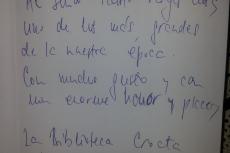 Al señor
uno de los más grandes
de la nuestra época.
Con mucho gusto y con
un enorme honor y placer
La Biblioteca Croata